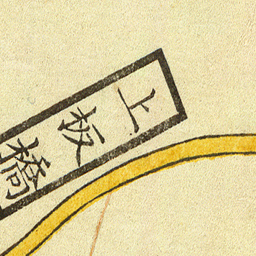 上板橋